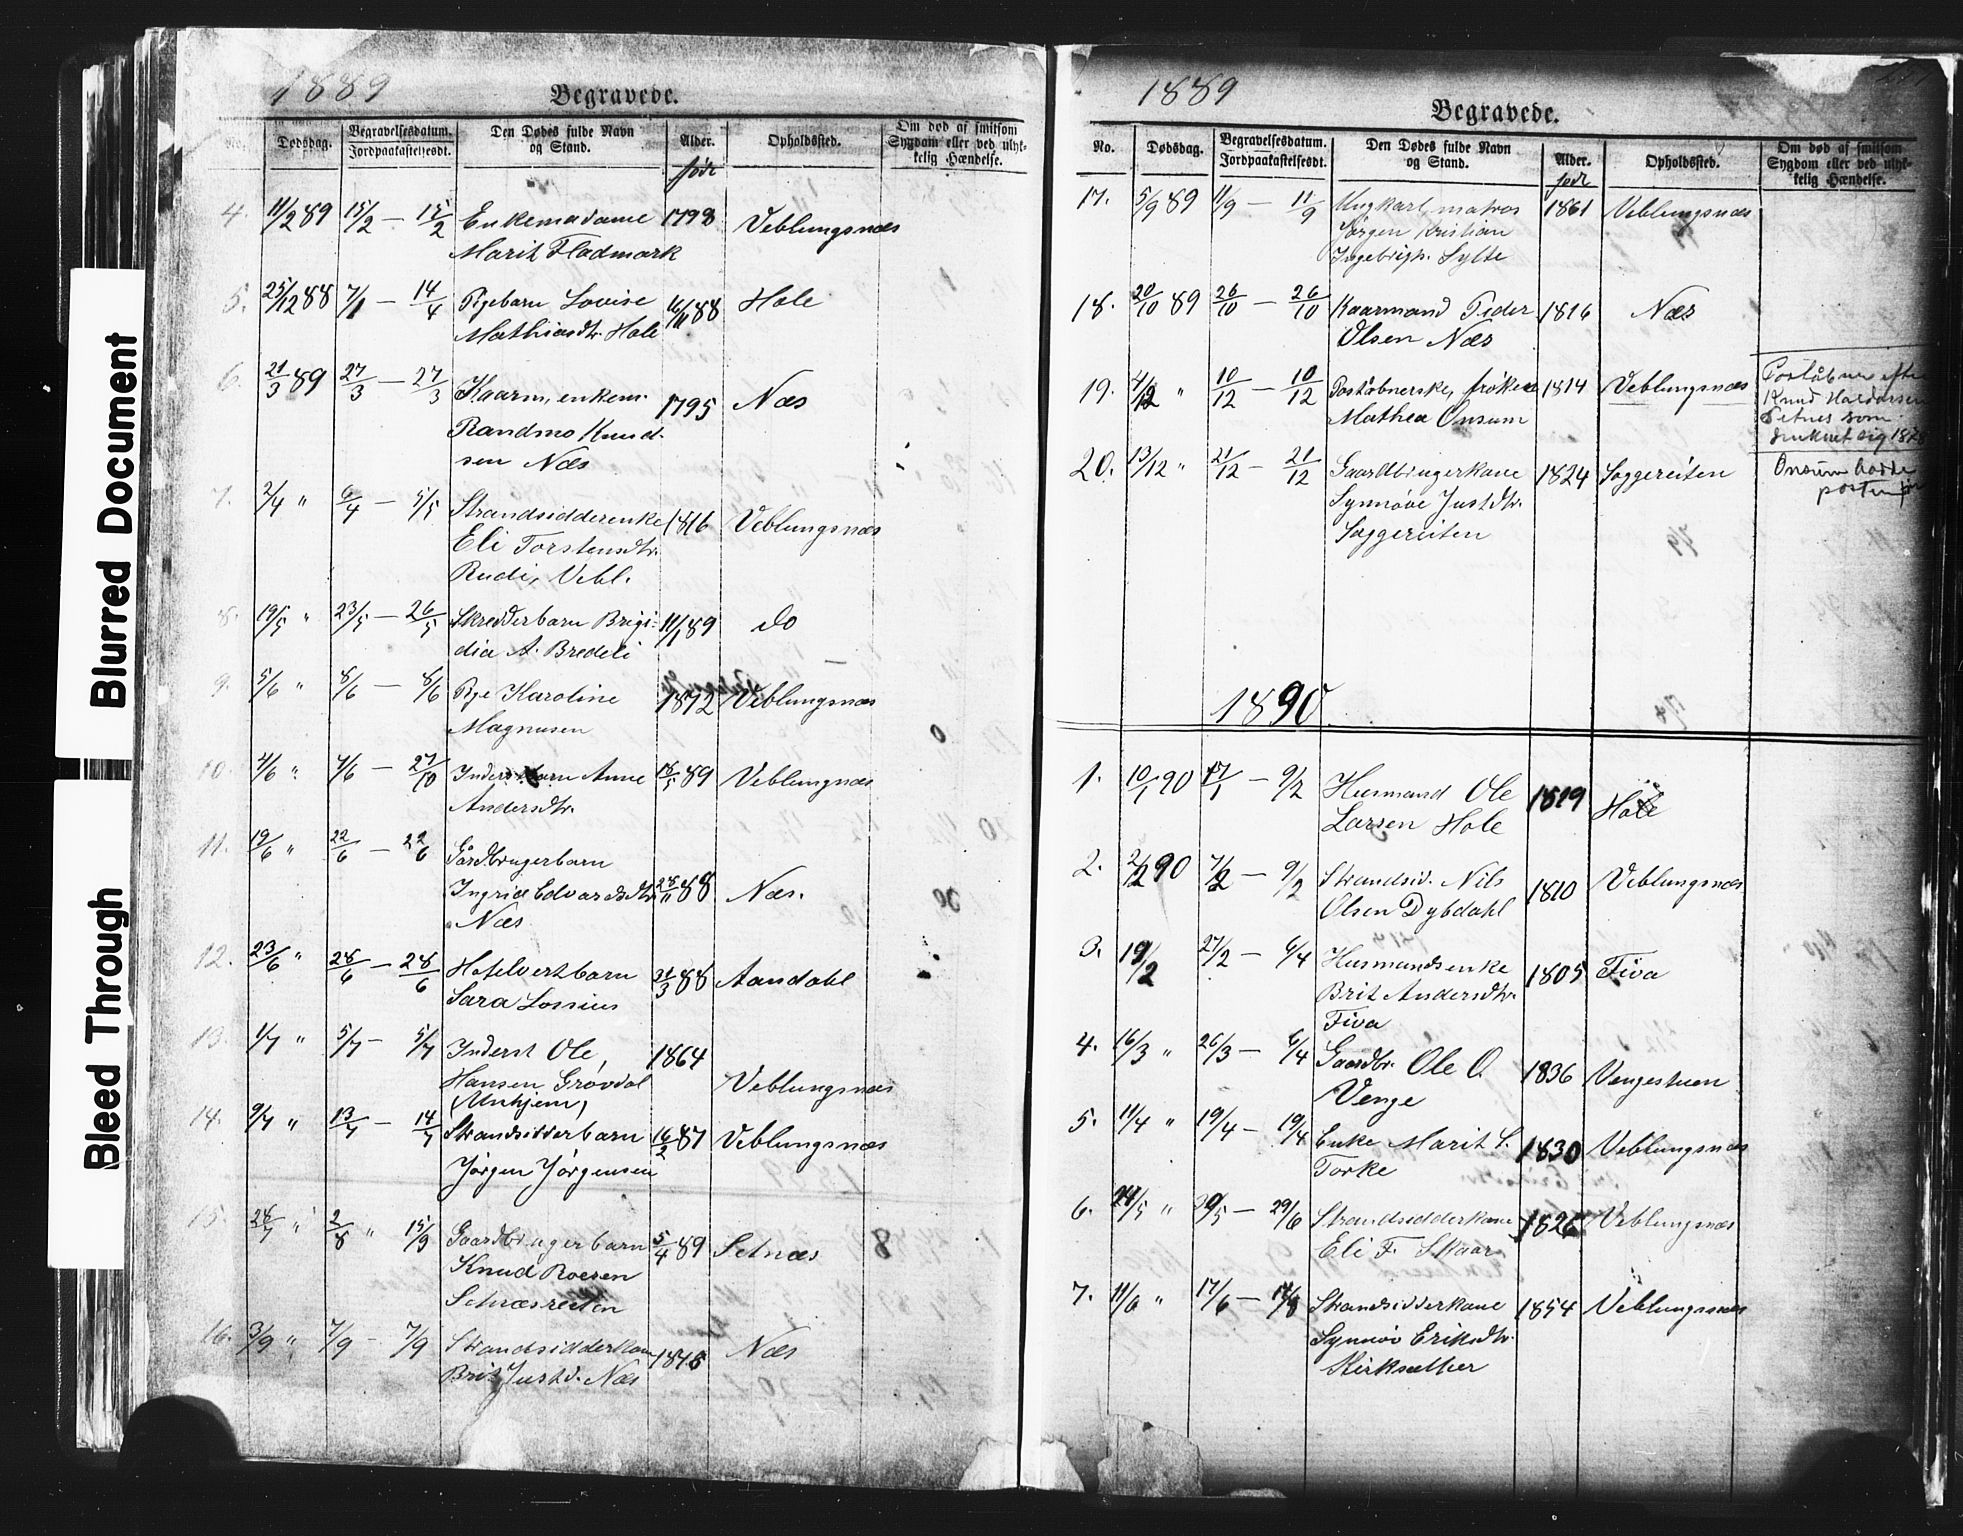 Blurred Document
Bleed Through
1889
Begravede.
No. Dødsdag. Begravelsesdatum. Jordpaakastelsesdt. Den Dødes fulde Navn og Stand. Alder. født Opholdssted. Om død af smitsom Sygdom eller ved ulykkelig Hændelse.
4. 11/2 89 15/2 — 15/2 Enkemadame 1798 Veblungsnæs
Marit Fladmark
5. 25/12 88 7/1 — 14/4 Pigebarn Lovise 16/11 88 Hole
Mathiasdtr. Hole
6. 21/3 89 27/3 — 27/3 Kaarm. enkem. 1795 Næs
Randmo Knud-
sen Næs
7. 2/4 " 6/4 — 5/5 Strandsidderenke 1816 Veblungsnæs
Eli Torstensdtr.
Rudi, Vebl.
8. 19/5 " 23/5 — 26/5 Skredderbarn Brigi- 11/1 89 do
dia A. Bredeli
9. 5/6 " 8/6 — 8/6 Pge Karoline 1872 Veblungsnæs
Magnusen
10. 4/6 " 7/6 — 27/10 Inderstbarn Anne 15/5 89 Veblungnæs
Andersdtr.
11. 19/6 " 22/6 — 22/6 Gårdbrugerbarn
Ingrid Edvardsdtr. 28/11 88 Næs.
Næs
12. 23/6 " 28/6 — 28/6 Hotelvertbarn 31/3 88 Aandahl
Sara Lossius
13. 1/7 " 5/7 — 5/7 Inderst Ole, 1864
Hansen Grøvdal Veblungsnæs
(Unhjem)
14. 9/7 " 13/7 — 14/7 Strandsidderbarn 16/2 87 Veblungsnæs
Jørgen Jørgensen
15. 28/7 " 2/8 " 15/9 Gaardbrugerbarn 5/4 89 Setnæs
Knud Roesen
Setnæsreiten
16. 3/9 " 7/9 — 7/9 Strandsidderkone Næs
Brit Justd. Næs
1889
Begravede.
No. Dødsdag. Begravelsesdatum. Jordpaakastelsesdt. Den Dødes fulde Navn og Stand. Alder. født Opholdssted. Om død af smitsom Sygdom eller ved ulykkelig Hændelse.
17. 5/9 89 11/9 — 11/9 Ungkarl, matros 1861 Veblungsnæs
Jørgen Kristian
Ingebrigts. Sylte
18. 20/10 89 26/10 — 26/10 Kaarmand Peder 1816 Næs
Olsen Næs
19. 4/12 " 10/12 — 10/12 Postabnerske, frøken 1814 Veblungsnæs
Mathea Onsum
Postabner efter
Knud Haldorsen
Setnes som
druknet sig 1878
20. 13/12 " 21/12 — 21/12 Gaardbrugerkone 1824 Soggereiten
Synnøve Justdtr.
Soggereiten
Onsum hadde
posten før
1890
1. 10/1 90 17/1 — 9/2 Husmand Ole 1819 Hole
Larsen Hole
2. 2/2 90 7/2 — 9/2 Strandsid. Nils 1810 Veblungsnæs
Olsen Dybdahl
3. 19/2 27/2 — 6/4 Husmandsenke 1805 Fiva
Brit Andersdtr.
Fiva
4. 16/3 " 26/3 — 6/4 Gaardbr. Ole O. 1836 Vengestuen
Venge
5. 11/4 " 19/4 — 19/4 Enke Marit S. 1830 Veblungsnæs
Torke
6. 24/5 " 30/5 — 29/6 Strandsidderkone 1826 Veblungsnæs
Eli F. Skaar
7. 11/6 " 17/6 — Strandsidderkone 1854 Veblungsnæs
Synnøv Eriksdtr.
Kirksæther